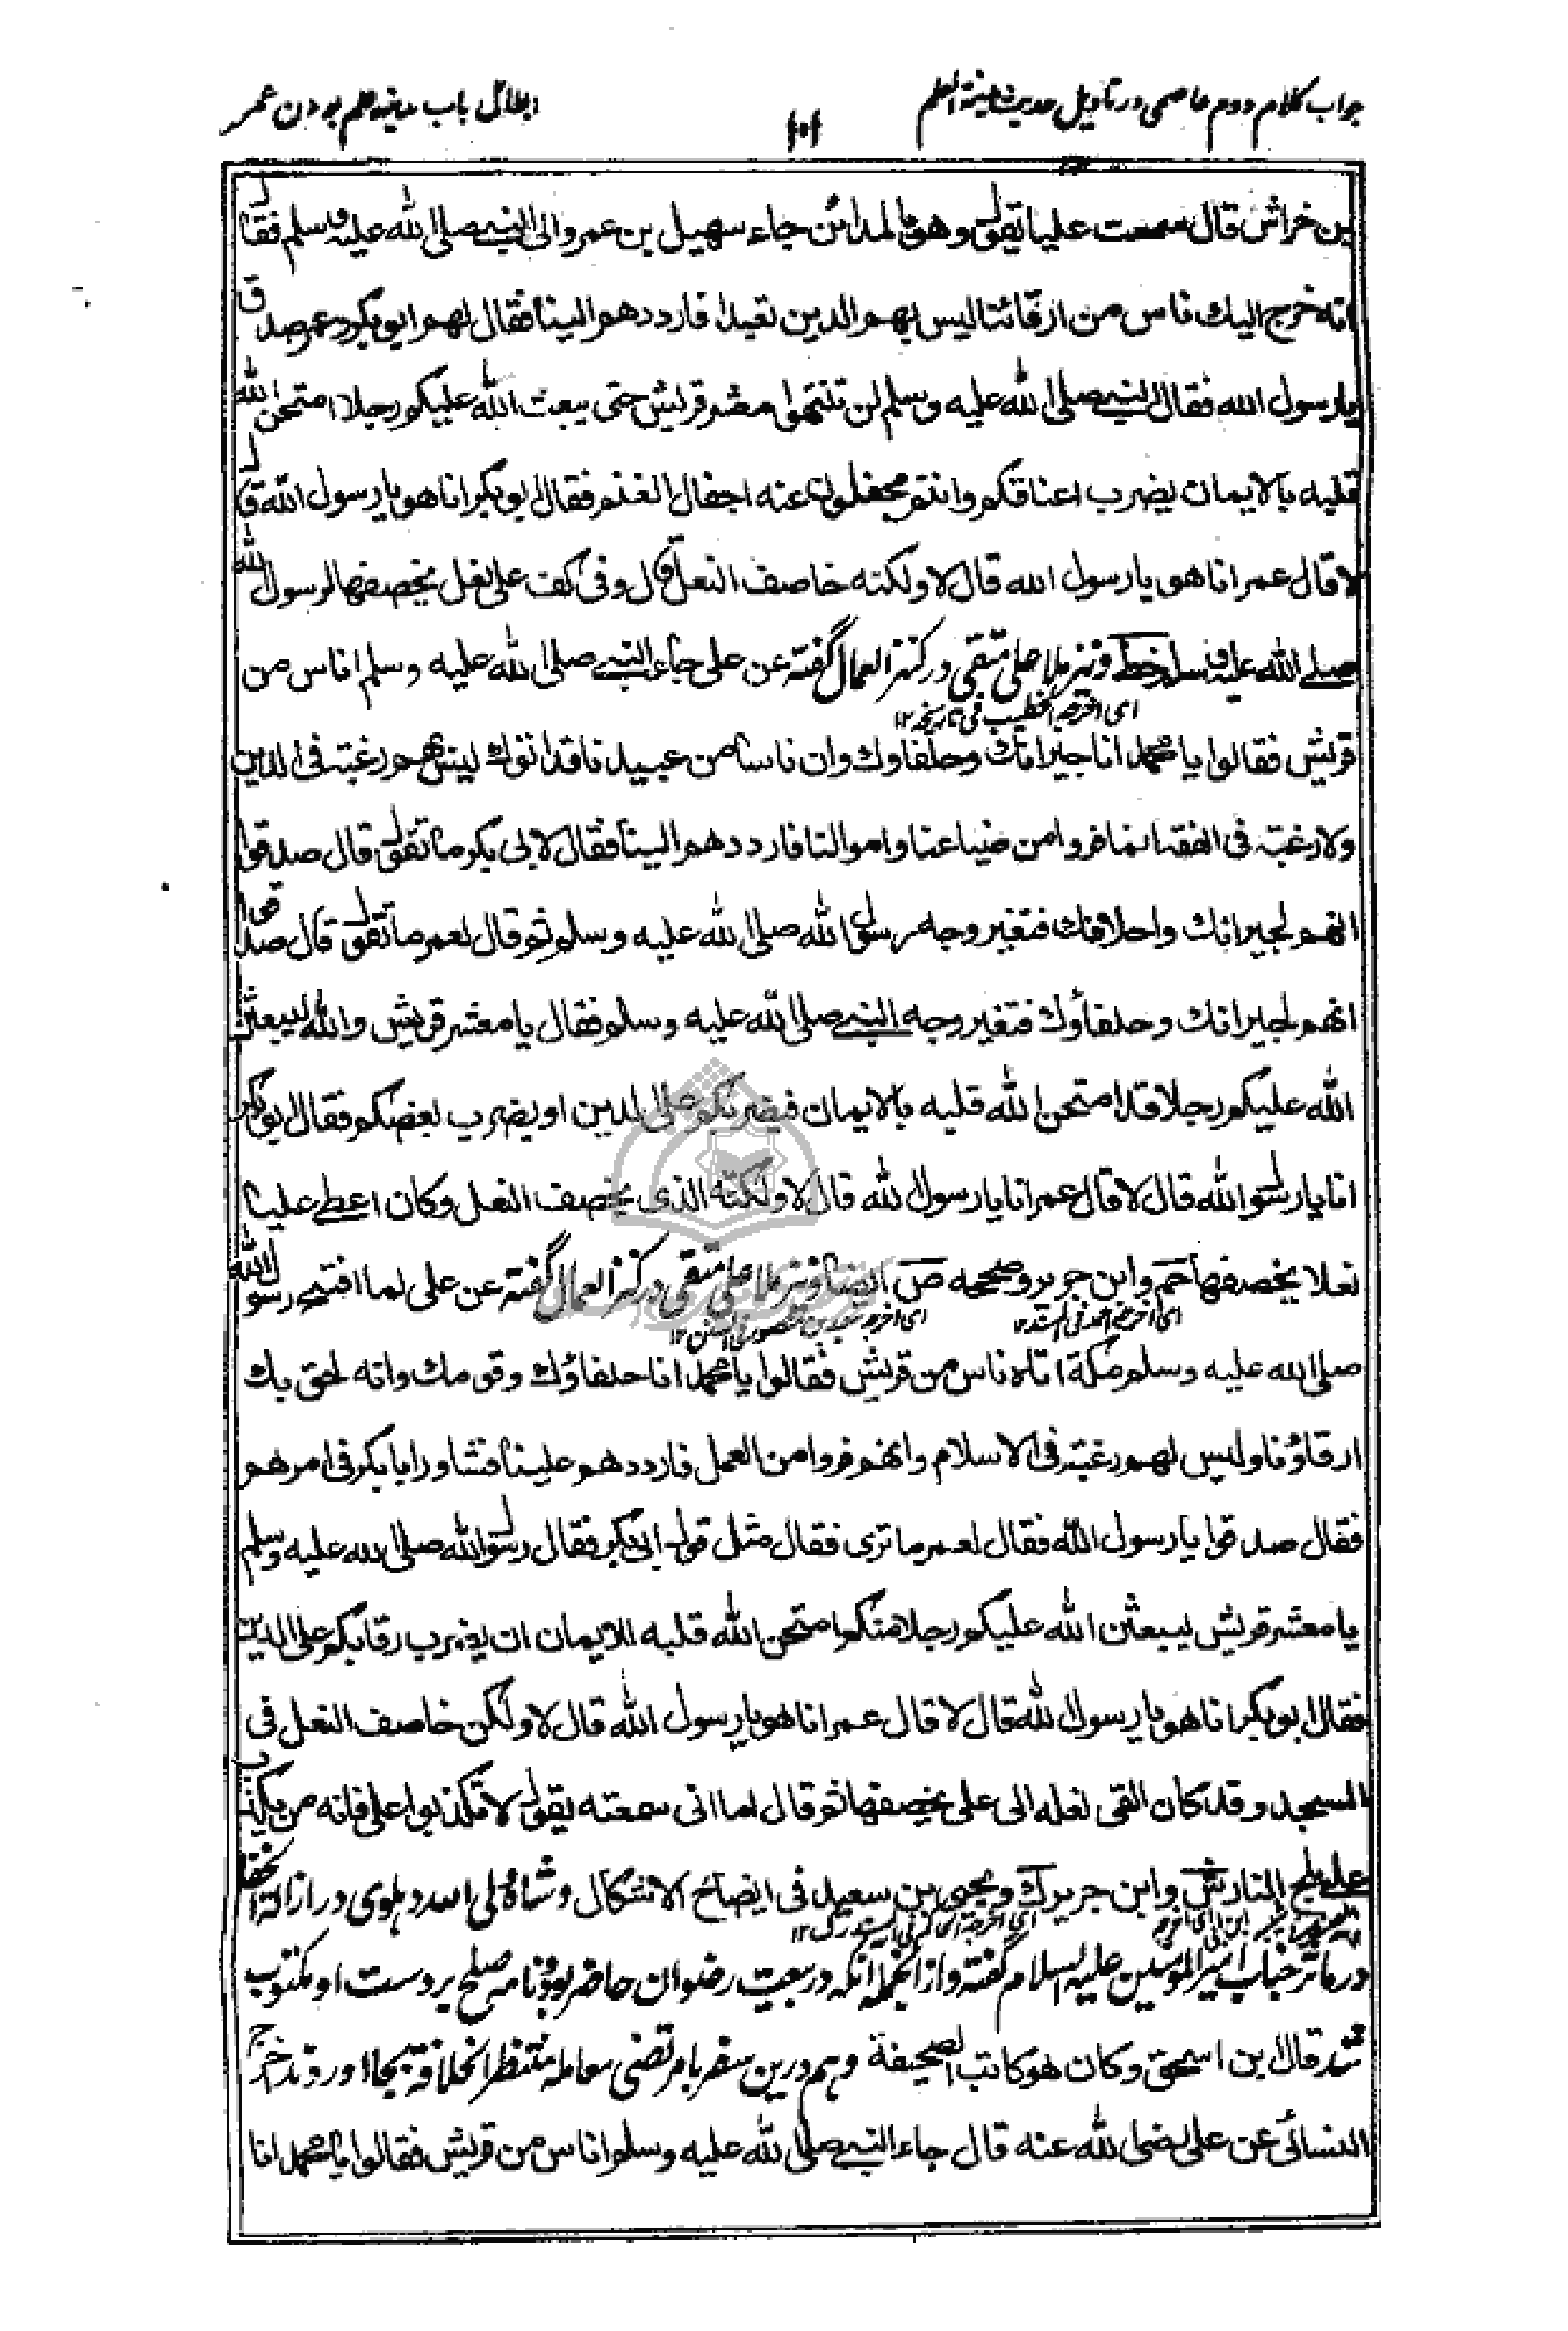 جواب کلام دوم عاصمی در تاویل حدیث مدینة العلم
۱۰۱
ابطال باب مدینه علم بودن عمر
بن خراش قال سمعت علیا یقول و هو بالمدائن جاء سهیل بن عمرو الی النبی صلی الله علیه وسلم فقال
انه خرج الیك ناس من ارقائنا لیس بهم الدین تعبدا فارددهم الینا فقال لهم ابو بکر و عمر صدق
یا رسول الله فقال النبی صلی الله علیه وسلم لن تنتهوا معشر قریش حتی یبعث الله علیکم رجلا امتحن الله
قلبه بالایمان یضرب اعناقکم وانتم مجفلون عنه اجفال الغنم فقال ابو بکر انا هو یا رسول الله قال
لا قال عمر انا هو یا رسول الله قال لا ولکنه خاصف النعل قال وفی کف علی نعل یخصفها لرسول الله
صلی الله علیه وسلم خط و نیز ملا علی متقی در کنز العمال گفته عن علی جاء النبی صلی الله علیه وسلم اناس من
ای اخرجه الخطیب فی تاریخه ۱۲
قریش فقالوا یا محمد انا جیرانك وحلفاوك وان ناسا من عبیدنا قد اتوك لیس بهم رغبة فی الدین
ولا رغبة فی الفقه انما فروا من ضیاعنا واموالنا فارددهم الینا فقال لابی بکر ما تقول قال صدقوا
انهم لجیرانك واحلافك فتغیر وجه رسول الله صلی الله علیه وسلم ثم قال لعمر ما تقول قال صدقوا
انهم لجیرانك وحلفاؤك فتغیر وجه النبی صلی الله علیه وسلم فقال یا معشر قریش والله لیبعثن
الله علیکم رجلا قد امتحن الله قلبه بالایمان فیضربکم علی الدین او یضرب بعضکم فقال ابو بکر
انا یا رسول الله قال لا قال عمر انا یا رسول الله قال لا ولکنه الذی یخصف النعل وکان اعطی علیا
نعلا یخصفها حم وابن جریر وصححه ص ایضا و نیز ملا علی متقی در کنز العمال گفته عن علی لما افتتح رسول الله
ای اخرجه احمد فی المسند ۱۲ ای اخرجه سعید بن منصور فی السنن ۱۲
صلی الله علیه وسلم مکة اتاه ناس من قریش فقالوا یا محمد انا حلفاؤك وقومك وانه لحق بك
ارقاؤنا ولیس لهم رغبة فی الاسلام وانهم فروا من العمل فارددهم علینا فشاور ابا بکر فی امرهم
فقال صدقوا یا رسول الله فقال لعمر ما تری فقال مثل قول ابی بکر فقال رسول الله صلی الله علیه وسلم
یا معشر قریش لیبعثن الله علیکم رجلا منکم امتحن الله قلبه للایمان ان یضرب رقابکم علی الدین
فقال ابو بکر انا هو یا رسول الله قال لا قال عمر انا هو یا رسول الله قال لا ولکن خاصف النعل فی
المسجد وقد کان القی نعله الی علی یخصفها ثم قال اما انی سمعته یقول لا تکذبوا علی فانه من یکذب
علی یلج النار ش وابن جریر ك ویحیی بن سعید فی ایضاح الاشکال و شاه ولی الله دهلوی در ازالة الخفا
ابن ابی ای اخرجه الحاکم فی المستدرک ۱۲
در مآثر جناب امیر المؤمنین علیه السلام گفته و از انجمله آنکه در بیعت رضوان حاضر بود و نامه صلح بردست او مکتوب
شد قال ابن اسحق وکان هو کاتب الصحیفة و هم درین سفر با مرتضی معامله منتظر الخلافة بجا اوردند اخرج
النسائی عن علی رضی الله عنه قال جاء النبی صلی الله علیه وسلم اناس من قریش فقالوا یا محمد انا